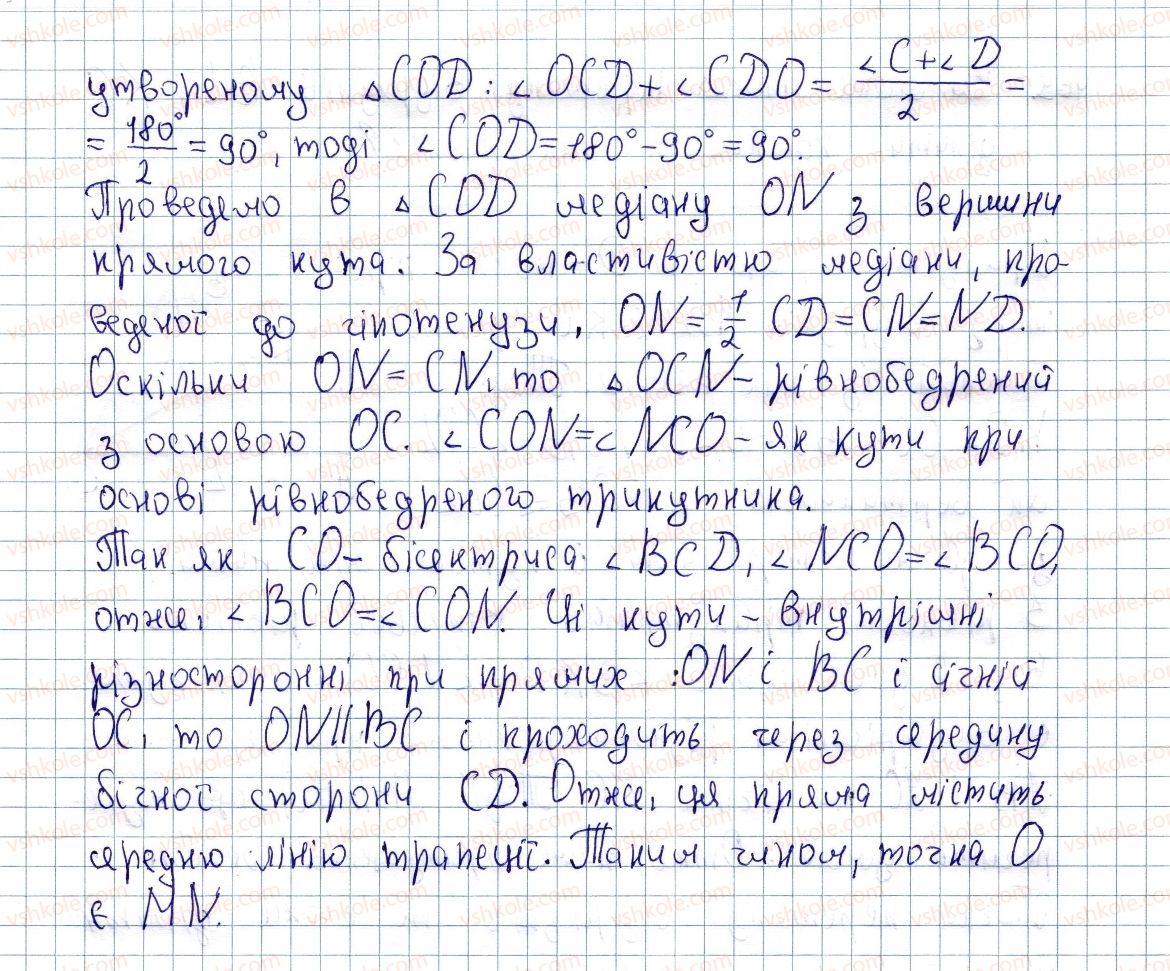 утвореному △COD: ∠OCD+∠CDO= (∠C+∠D)/2 =
= 180°/2 = 90°, тоді ∠COD=180°-90°=90°.
Проведемо в △COD медіану ON з вершини
прямого кута. За властивістю медіани, про-
веденої до гіпотенузи, ON= 1/2 CD=CN=ND.
Оскільки ON=CN, то △OCN- рівнобедрений
з основою OC. ∠CON=∠NCO- як кути при
основі рівнобедреного трикутника.
Так як CO- бісектриса ∠BCD, ∠NCO=∠BCO,
отже, ∠BCO=∠CON. Ці кути - внутрішні
різносторонні при прямих :ON і BC і січній
OC, то ON||BC і проходить через середину
бічної сторони CD. Отже, ця пряма містить
середню лінію трапеції. Таким чином, точка O
є MN.